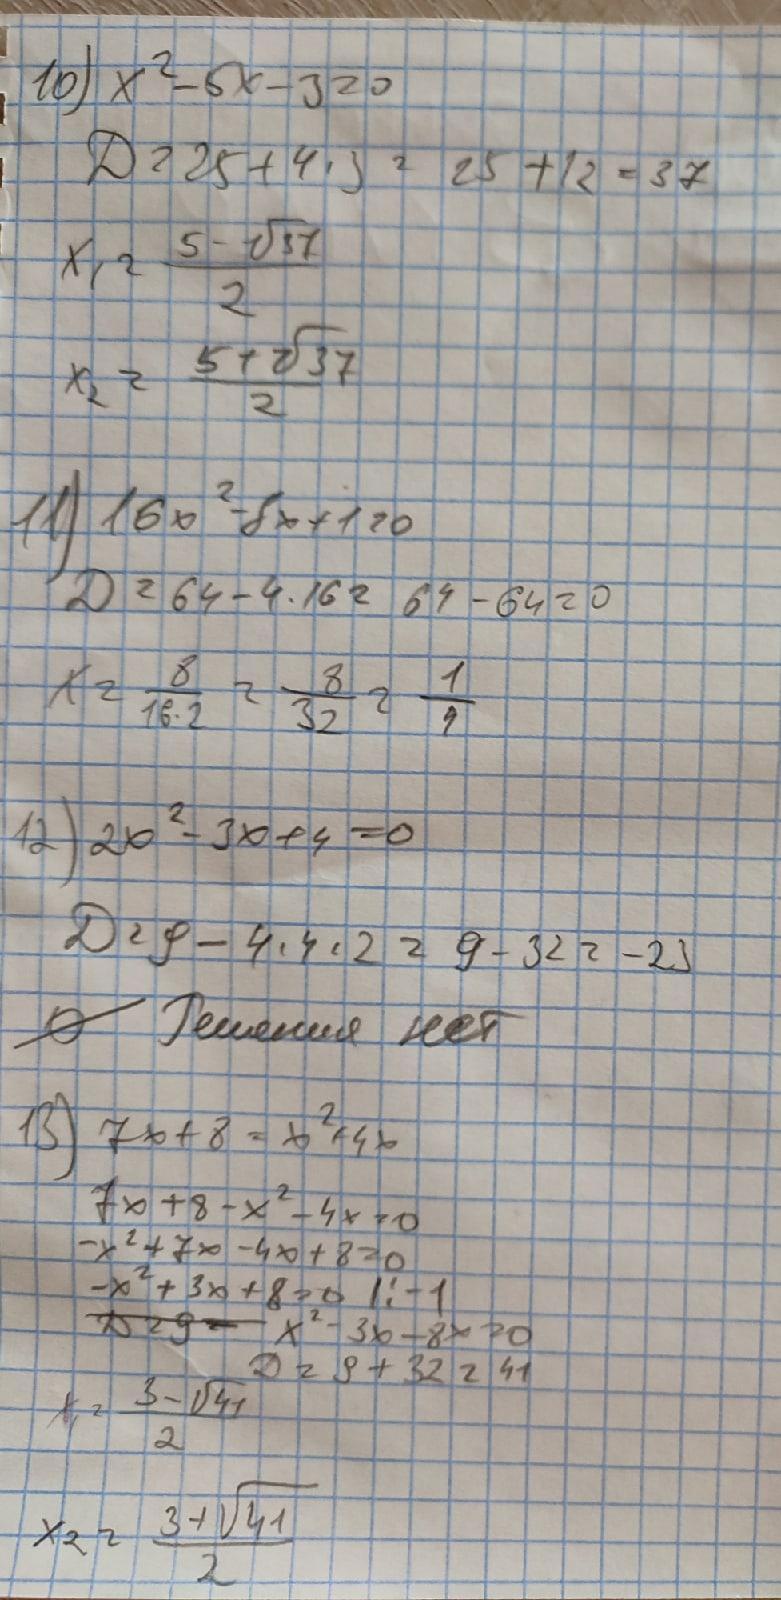 10) x² - 5x - 3 = 0
D = 25 + 4 · 3 = 25 + 12 = 37
x₁ = (5 - √37)/2
x₂ = (5 + √37)/2
11) 16x² - 8x + 1 = 0
D = 64 - 4 · 16 = 64 - 64 = 0
x = 8/(16 · 2) = 8/32 = 1/4
12) 2x² - 3x + 4 = 0
D = 9 - 4 · 4 · 2 = 9 - 32 = -23
Решения нет
13) 7x + 8 = x² + 4x
7x + 8 - x² - 4x = 0
-x² + 7x - 4x + 8 = 0
-x² + 3x + 8 = 0 |: -1
D = 9 - x² - 3x - 8x = 0
D = 9 + 32 = 41
x₁ = (3 - √41)/2
x₂ = (3 + √41)/2